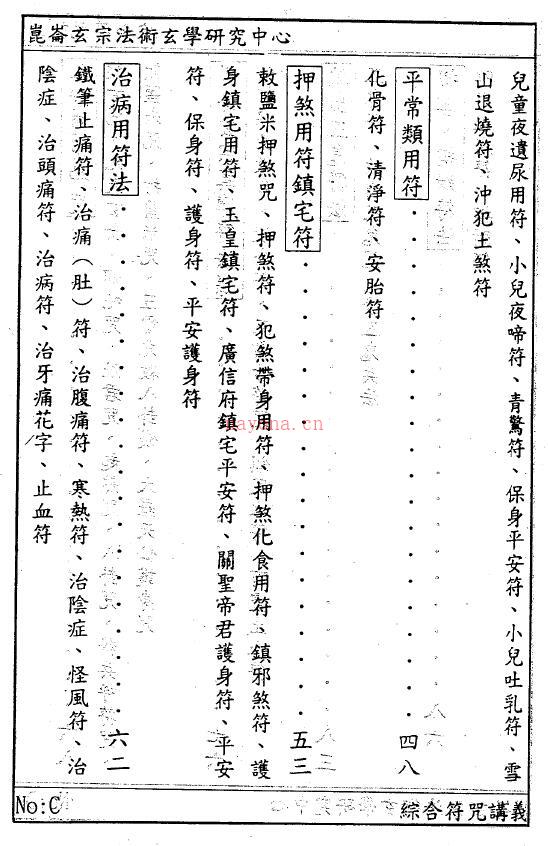 崑崙玄宗法術玄學研究中心
兒童夜遺尿用符、小兒夜啼符、青驚符、保身平安符、小兒吐乳符、雪
山退燒符、沖犯土煞符
平常類用符．．．．．．．．．．．．．．四八
化骨符、清淨符、安胎符
押煞用符鎮宅符．．．．．．．．．．．．五三
敕鹽米押煞咒、押煞符、犯煞帶身用符、押煞化食用符、鎮邪煞符、護
身鎮宅用符、玉皇鎮宅符、廣信府鎮宅平安符、關聖帝君護身符、平安
符、保身符、護身符、平安護身符
治病用符法．．．．．．．．．．．．．．六二
鐵筆止痛符、治痛（肚）符、治腹痛符、寒熱符、治陰症、怪風符、治
陰症、治頭痛符、治病符、治牙痛花字、止血符
No:C
綜合符咒講義